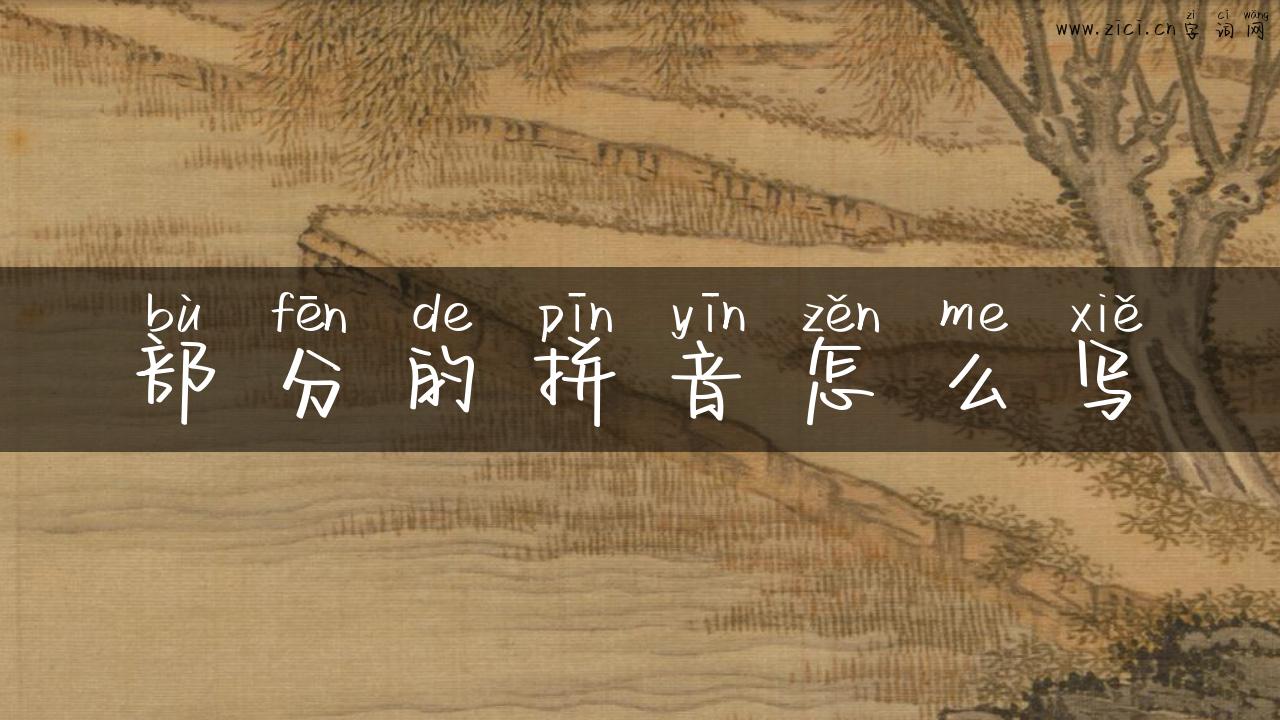 zì cí wǎng
www.zici.cn字词网
bù fēn de pīn yīn zěn me xiě
部分的拼音怎么写